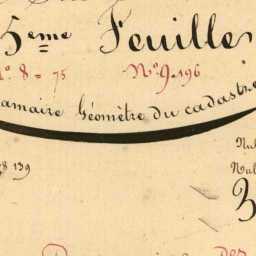 5eme Feuille
No. 8 = 75 No. 9-196
amaire Géomètre du cadastre
Nul
8 139
Nul
3